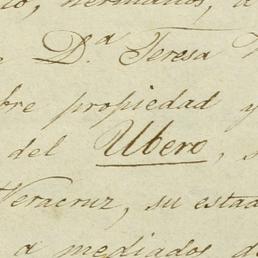 hermanos, a
D.ª Teresa
propiedad y
del Ubero, s
Veracruz, su estad
a mediados de